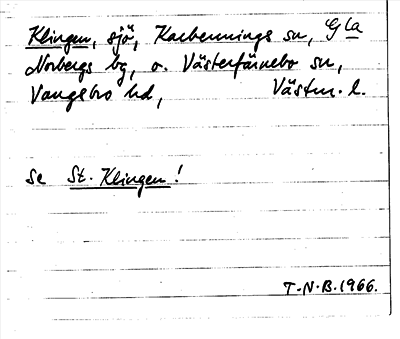 Klingen, sjö, Karbennings sn, Gla
Norbergs bg, o. Västerfärnebo sn,
Vangsbro hd, Västm. l.
Se St. Klingen!
T.N.B. 1966.